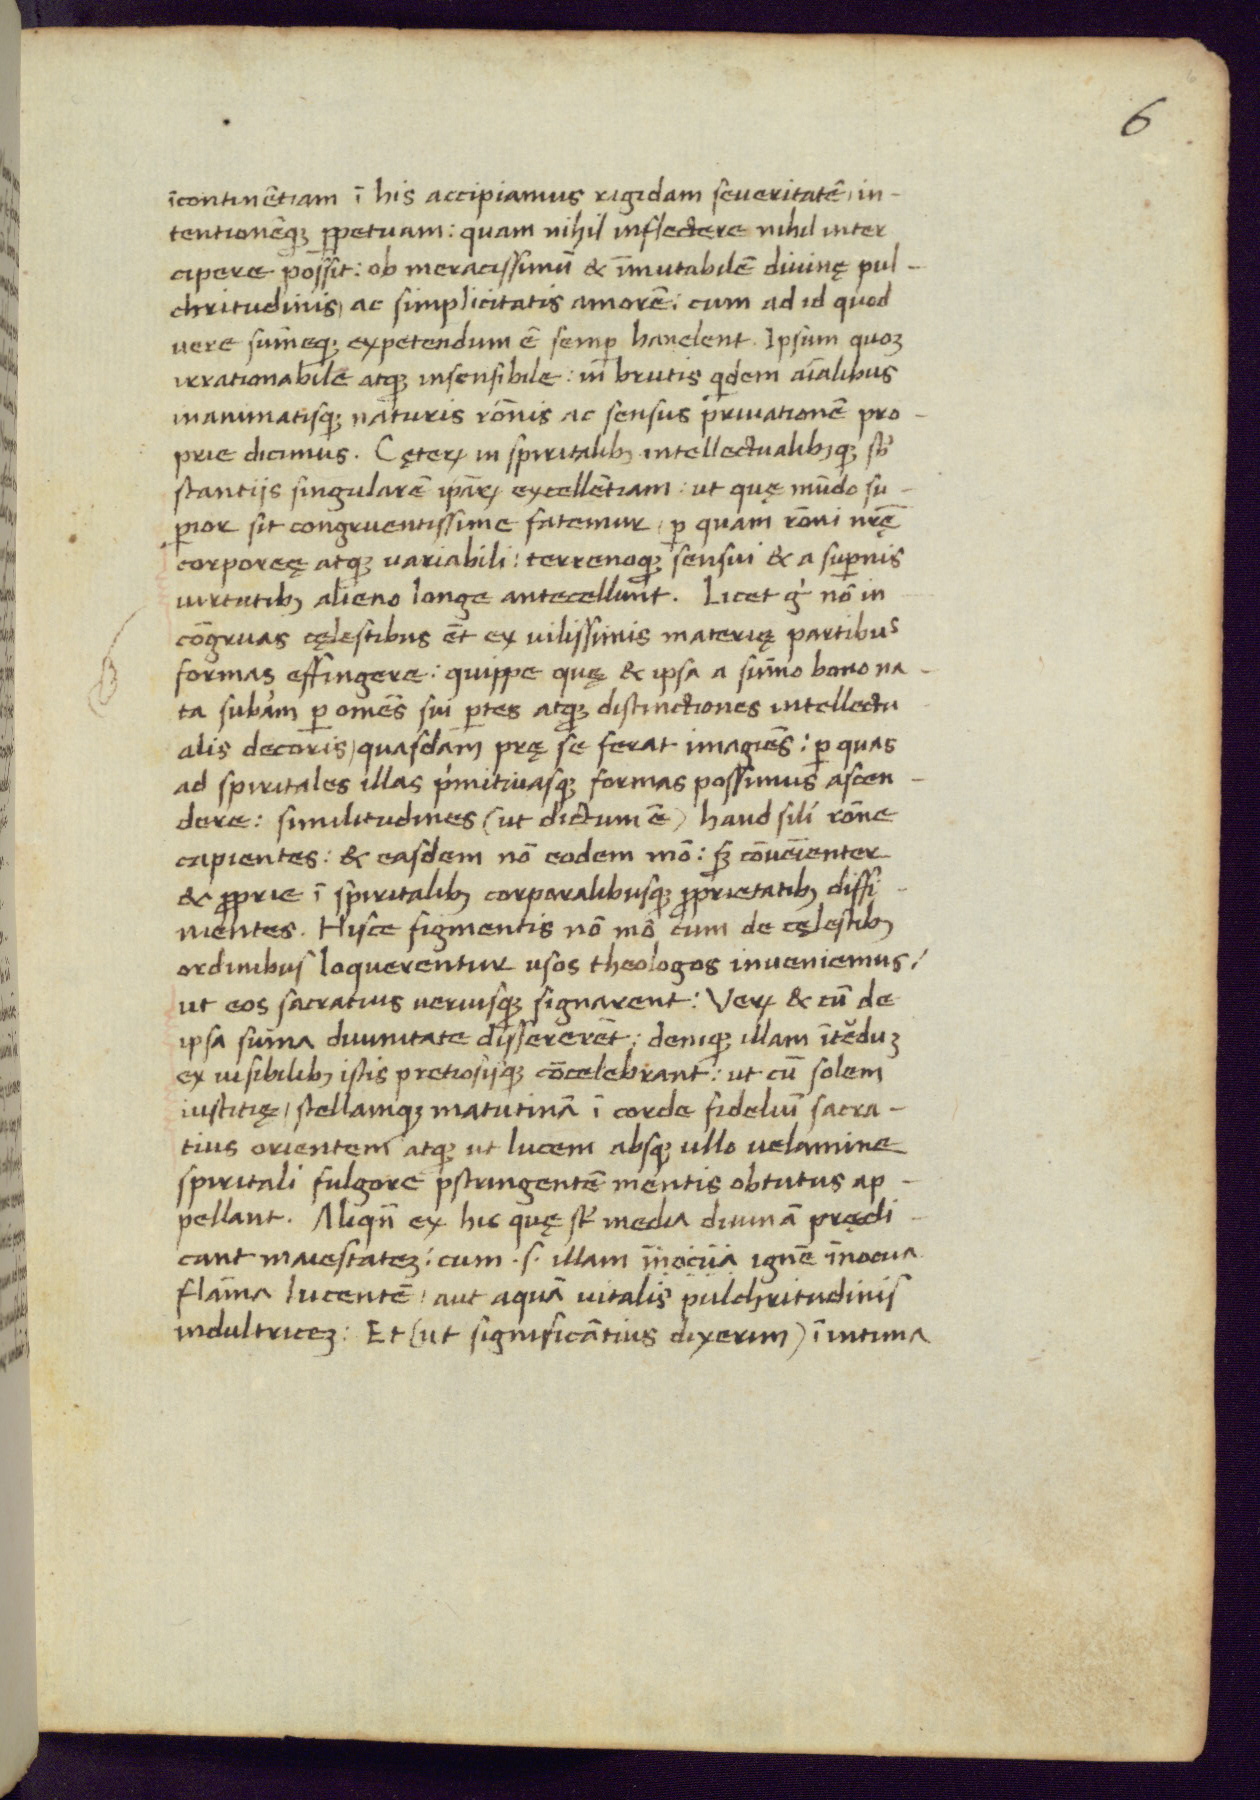 6
īcontinētiam ī his accipiamus rigidam seueritatē, in-
tentionēqꝫ ꝑpetuam: quam nihil inflectere nihil inter
cipere possit: ob meracissimū & īmutabilē diuinę pul-
chritudinis, ac simplicitatis amorē: cum ad id quod
uere sūmeqꝫ expetendum ē semꝑ hanelent. Ipsum quoqꝫ
irrationabile atqꝫ insensibile: in brutis qͥdem aīalibus
inanimatisqꝫ naturis rōnis ac sensus pͥuationē pro-
prie dicimus. Cęterꝝ in spiritalibꝫ intellectualibꝫqꝫ sb̄
stantijs singularē ipārꝝ excellētiam: ut quę mūdo su-
ꝑior sit congruentissime fatemur, ꝑ quam rōni nr̄ę
corporeę atqꝫ uariabili: terrenoqꝫ sensui & a suꝑnis
uirtutibꝫ alieno longe antecellunt. Licet gͥ nō in
cōgruas cęlestibus ēt ex uilissimis materię partibus
formas effingere: quippe quę & ipsa a sūmo bono na-
ta subām ꝑ omēs sui ꝑtes atqꝫ distinctiones intellectu
alis decoris, quasdam prę se ferat imagiēs: ꝑ quas
ad spiritales illas pͥmitiuasqꝫ formas possimus ascen-
dere: similitudines (ut dictum ē) haud sili rōne
capientes: & easdem nō eodem mō: sꝫ cōueīenter
& ꝓprie ī spiritalibꝫ corporalibusqꝫ ꝓprietatibꝫ diffi-
nientes. Hisce figmentis nō mō cum de cęlestibꝫ
ordinibus loquerentur usos theologos inueniemus:
ut eos sacratius ueriusqꝫ signarent: Verꝝ & cū de
ipsa sūma diuinitate dissererēt: deniqꝫ illam ītēduꝫ
ex uisibilibꝫ istis pretiosijsqꝫ cōcelebrant: ut cū solem
iustitię, stellamqꝫ matutinā ī corde fideliū sacra-
tius orientem atqꝫ ut lucem absqꝫ ullo uelamine
spiritali fulgore p̄stringentē mentis obtutus ap-
pellant. Aliqn̄ ex his quę st̄ media diuinā prędi-
cant maiestateꝫ: cum .s. illam īnocua ignē īnocua
flāma lucentē, aut aquā uitalis pulchritudinis
indultriceꝫ: Et (ut significātius dixerim) ī intima